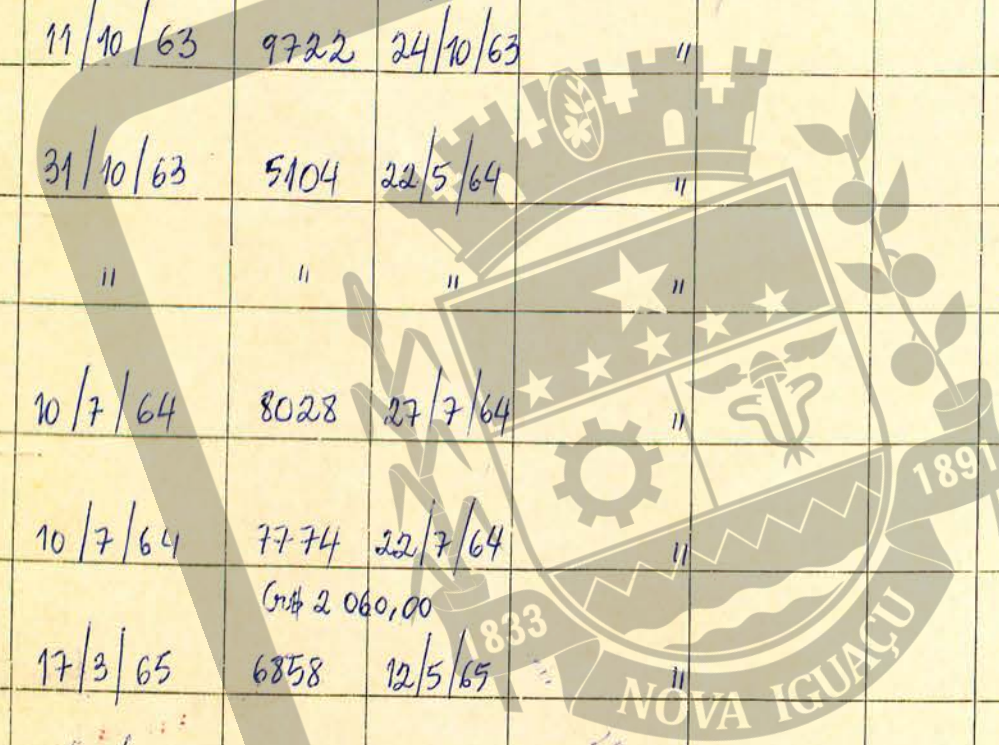 11/10/63 9722 24/10/63 "
31/10/63 5104 22/5/64 "
" " " "
10/7/64 8028 27/7/64 "
10/7/64 7774 22/7/64 "
Cr$ 2 060,00
17/3/65 6858 12/5/65 "
1833
1891
NOVA IGUAÇU